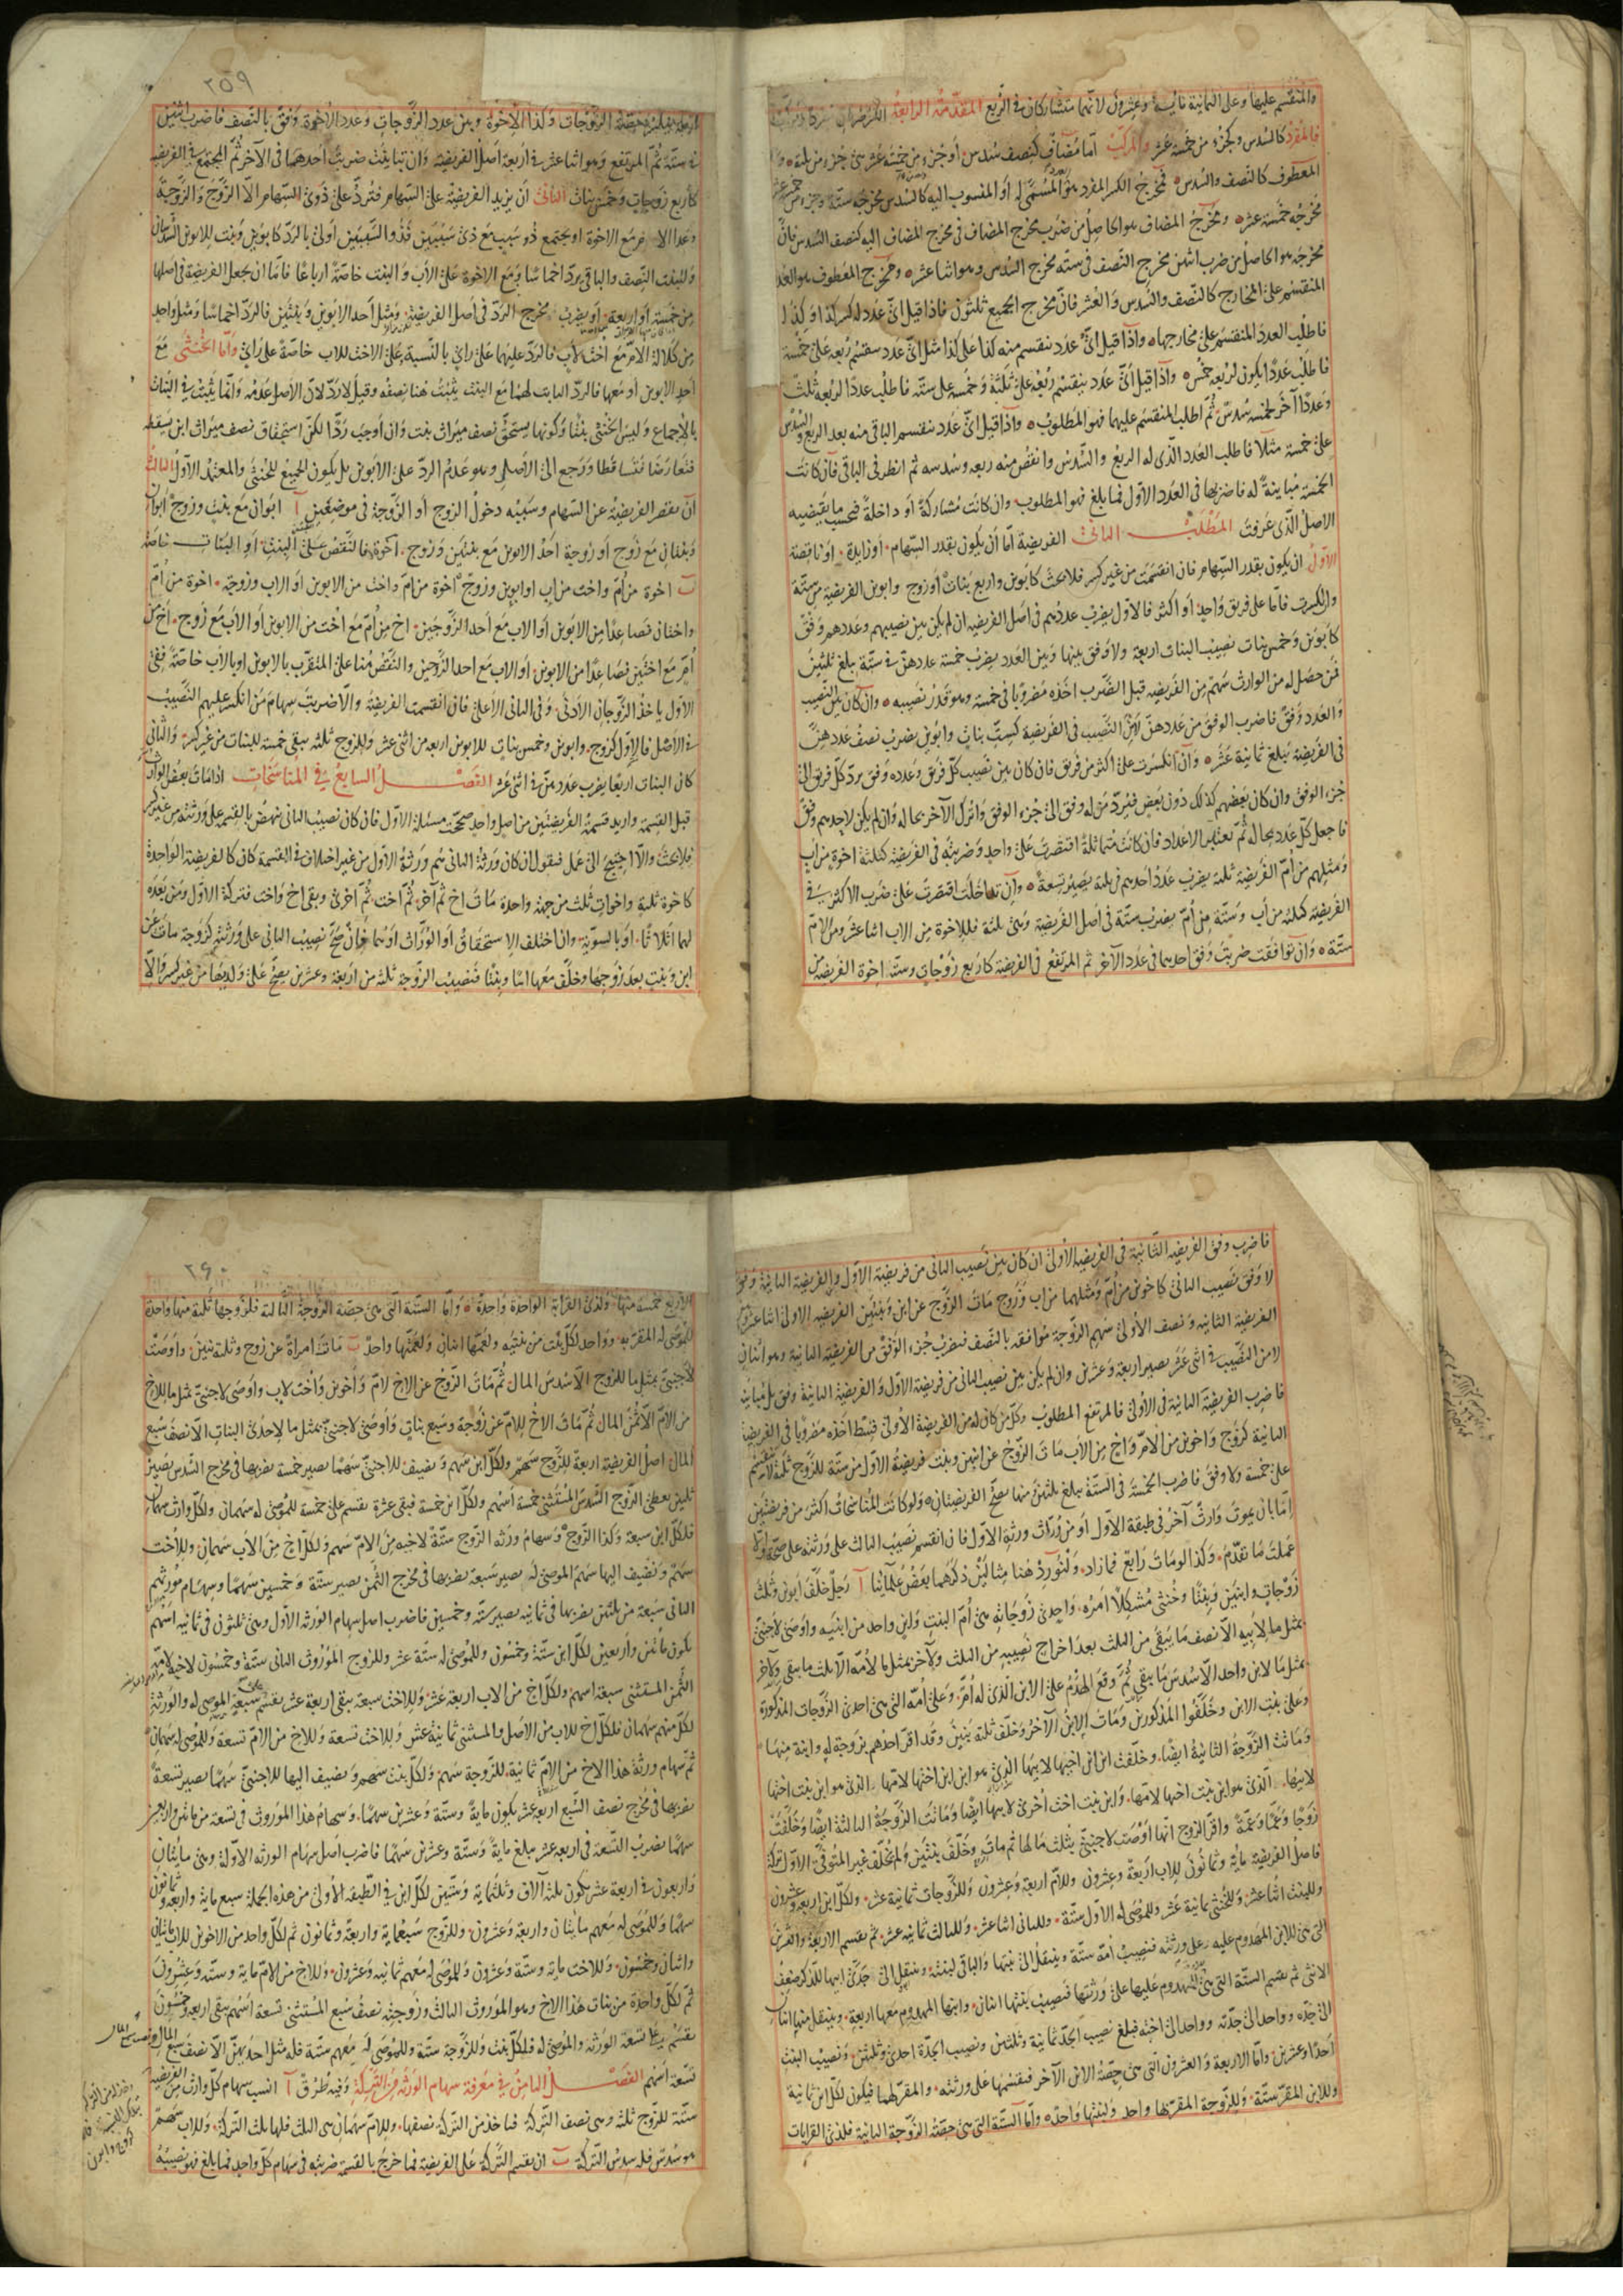 والمنقسم عليها وعلى الثمانية ثمانية وعشرون لانهما متشاركان في الربع المقدمة الرابعة الكسر
فالمفرد كالسدس وكجزء من خمسة عشر والمركب اما مضاف كنصف سدس او جزء من خمسة عشر من جزء من ثلثة
المعطوف كالنصف والسدس فمخرج الكسر المفرد هو العدد المسمى له او المنسوب اليه كالسدس مخرجه ستة وجزء من خمسة عشر
مخرجه خمسة عشر ومخرج المضاف هو الحاصل من ضرب مخرج المضاف في مخرج المضاف اليه كنصف السدس فان
مخرجه هو الحاصل من ضرب اثنين مخرج النصف في ستة مخرج السدس وهو اثنا عشر ومخرج المعطوف هو العدد
المنقسم على المخارج كالنصف والسدس والعشر فان مخرج الجميع ثلثون فاذا قيل اي عدد له كسر كذا او كذا
فاطلب العدد المنقسم على مخارجها واذا قيل اي عدد ينقسم منه كذا على كذا مثل اي عدد ينقسم ربعه على خمسة
فاطلب عددا يكون لربعه خمس واذا قيل اي عدد ينقسم ربعه على ثلثة وخمسه على ستة فاطلب عددا لربعه ثلث
وعددا آخر لخمسه سدس ثم اطلب المنقسم عليهما فهو المطلوب واذا قيل اي عدد ينقسم الباقي منه بعد الربع والسدس
على خمسة مثلا فاطلب العدد الذي له الربع والسدس وانقص منه ربعه وسدسه ثم انظر في الباقي فان كانت
الخمسة مباينة له فاضربها في العدد الاول فما بلغ فهو المطلوب وان كانت مشاركة او داخلة فبحسب ما يقتضيه
الاصل الذي عرفت المطلب الثاني الفريضة اما ان يكون بقدر السهام او زايدة او ناقصة
الاول ان يكون بقدر السهام فان انقسمت من غير كسر فلا بحث كابوين واربع بنات او زوج وابوين الفريضة من ستة
وان انكسرت فاما على فريق واحد او اكثر فالاول يضرب عددهم في اصل الفريضة ان لم يكن بين نصيبهم وعددهم وفق
كابوين وخمس بنات نصيب البنات اربعة ولا وفق بينها وبين العدد يضرب خمسة عددهن في ستة بلغ ثلثين
فمن حصل له من الوارث سهم من الفريضة قبل الضرب اخذه مضروبا في خمسة وهو قدر نصيبه وان كان بين النصيب
والعدد وفق فاضرب الوفق من عددهن لا من النصيب في الفريضة كست بنات وابوين يضرب نصف عددهن
في الفريضة يبلغ ثمانية عشر وان انكسرت على اكثر من فريق فان كان بين نصيب كل فريق وعدده وفق يرد كل فريق الى
جزء الوفق وان كان بعضهم كذلك دون بعض فيرد من له وفق الى جزء الوفق واترك الآخر بحاله وان لم يكن لاحدهم وفق
فاجعل كل عدد بحاله ثم تعتبر الاعداد فان كانت متماثلة اقتصرت على واحد وضربته في الفريضة كثلثة اخوة من اب
ومثلهم من ام الفريضة ثلثة يضرب عدد احدهم في ثلثة يصير تسعة وان تداخلت اقتصرت على ضرب الاكثر في
الفريضة كثلثة من اب وستة من ام يضرب ستة في اصل الفريضة وهي ثلثة فللاخوة من الاب اثنا عشر ومن الام
ستة وان توافقت ضربت وفق احدهما في عدد الآخر ثم المرتفع في الفريضة كاربع زوجات وستة اخوة الفريضة من
٢٥٩
حصة الزوجات وكذا الاخوة وبين عدد الزوجات وعدد الاخوة وفق بالنصف فاضرب اثنين
في ستة ثم المرتفع وهو اثنا عشر في اربعة اصل الفريضة وان تباينت ضربت احدهما في الآخر ثم المجتمع في الفريضة
كاربع زوجات وخمس بنات الثاني ان يزيد الفريضة على السهام فترد على ذوي السهام الا الزوج والزوجة
وعدا الام مع الاخوة او يجتمع ذو سبب مع ذي سببين فذو السببين اولى بالرد كابوين وبنت للابوين السدسان
وللبنت النصف والباقي يرد اخماسا ومع الاخوة على الاب والبنت خاصة ارباعا فاما ان يجعل الفريضة في اصلها
من خمسة او اربعة او يضرب مخرج الرد في اصل الفريضة ومثل احد الابوين وبنتين فالرد اخماسا ومثل واحد
من كلالة الام مع اخت لاب فالرد عليهما على راي بالنسبة على الاخت للاب خاصة على راي واما الخنثى مع
احد الابوين او معها فالرد الثابت لهما مع البنت يثبت هنا نصفه وقيل لا رد لان الاصل عدمه وانما يثبت في البنات
بالاجماع وليس الخنثى بنتا وكونها يستحق نصف ميراث بنت وان اوجب ردا لكن استحقاق نصف ميراث ابن يسقط
فتعارضا فتساقطا ورجع الى الاصل وهو عدم الرد على الابوين بل يكون الجميع للخنثى والمعتمد الاول الثالث
ان يقصر الفريضة عن السهام وسببه دخول الزوج او الزوجة في موضعين آ ابوان مع بنت وزوج ابوان
وبنتان مع زوج او زوجة احد الابوين مع بنتين وزوج فالنقص على البنت او البنات خاصة
ب اخوة من ام واخت من اب او ابوين وزوج اخوة من ام واخت من الابوين او الاب وزوجة اخوة من ام
واختان فصاعدا من الابوين او الاب مع احد الزوجين اخ من ام مع اخت من الابوين او الاب مع زوج اخ من
ام مع اختين فصاعدا من الابوين او الاب مع احد الزوجين والنقص هنا على المتقرب بالابوين او بالاب خاصة ففي
الاول ياخذ الزوجان الادنى وفي الثاني الاعلى فان انقسمت الفريضة والا ضربت سهام من انكسر عليهم النصيب
في الاصل فالاول كزوج وابوين وخمس بنات للابوين اربعة من اثني عشر وللزوج ثلثة يبقى خمسة للبنات من غير كسر والثاني
كان البنات اربعا يضرب عددهن في اثني عشر الفصل السابع في المناسخات اذا مات بعض الوراث
قبل القسمة واريد قسمة الفريضتين من اصل واحد صححت مسئلة الاول فان كان نصيب الثاني ينهض بالقسمة على ورثته من غير كسر
فلا بحث والا احتيج الى عمل فنقول ان كان ورثة الثاني هم ورثة الاول من غير اختلاف في القسمة كان كالفريضة الواحدة
كاخوة ثلثة واخوات ثلث من جهة واحدة مات اخ ثم آخر ثم اخت ثم اخرى وبقي اخ واخت فتركة الاول ومن بعده
لهما اثلاثا او بالسوية وان اختلف الاستحقاق او الوراث او هما فان صح نصيب الثاني على ورثته كزوجة ماتت عن
ابن وبنت بعد زوجها وخلف معها ابنا وبنتا فنصيب الزوجة ثلثة من اربعة وعشرين يصح على ولديها من غير كسر والا
فاضرب وفق الفريضة الثانية في الفريضة الاولى ان كان بين نصيب الثاني من فريضة الاول والفريضة الثانية وفق
لا وفق نصيب الثاني كاخوين من ام ومثلهما من اب وزوج مات الزوج عن ابن وبنتين الفريضة الاولى اثنا عشر
الفريضة الثانية ونصف الاولى سهم الزوجة موافقة بالنصف فنضرب جزء الوفق من الفريضة الثانية وهو اثنان
لا من النصيب في اثني عشر يصير اربعة وعشرين وان لم يكن بين نصيب الثاني من فريضة الاول والفريضة الثانية وفق بل مباينة
فاضرب الفريضة الثانية في الاولى فالمرتفع المطلوب وكل من كان له من الفريضة الاولى قسط اخذه مضروبا في الفريضة
الثانية كزوج واخوين من الام واخ من الاب مات الزوج عن ابنين وبنت فريضة الاول من ستة للزوج ثلثة لا ينقسم
على خمسة ولا وفق فاضرب الخمسة في الستة يبلغ ثلثين منها يصح الفريضتان ولو كانت المناسخات اكثر من فريضتين
اما بان يموت وارث آخر في طبقة الاول او من وراث ورثة الاول فان انقسم نصيب الثالث على ورثته على صحة والا
عملت ما تقدم وكذا لو مات رابع فمازاد ولنورد هنا مثالين ذكرهما بعض علمائنا آ رجل خلف ابوين وثلث
زوجات وابنين وبنتا وخنثى مشكلا امره واحدى زوجاته هي ام البنت ولابن واحد من ابنيه واوصى لاجنبي
بمثل ما لابيه الا نصف ما يبقى من الثلث بعد اخراج نصيبه من الثلث ولآخر بمثل ما لامه الا ثلث ما يبقى ولآخر
بمثل ما لابن واحد الا سدس ما يبقى ثم وقع الهدم على الابن الذي له ام وعلى امه التي هي احدى الزوجات المذكورة
وعلى بنت الابن وخلفوا المذكورين ومات الابن الآخر وخلف ثلثة بنين وقد اقر احدهم بزوجة له وابنة منها
وماتت الزوجة الثانية ايضا وخلفت ابن ابن اخيها لابيها الذي هو ابن ابن اختها لامها الذي هو ابن بنت اختها
لابيها الذي هو ابن بنت اخيها لامها وابن بنت اخت اخرى لابيها ايضا وماتت الزوجة الثالثة ايضا وخلفت
زوجا وعما وعمة واقر الزوج انها اوصت لاجنبي بثلث مالها ثم مات وخلف بنتين ولم يخلف غير المتوفى الاول تركة
فاصل الفريضة ماية وثمانون للاب اربعة وعشرون وللام اربعة وعشرون وللزوجات ثمانية عشر ولكل ابن اربعة وعشرون
وللبنت اثنا عشر وللخنثى ثمانية عشر وللموصى له الاول ستة وللثاني اثنا عشر وللثالث ثمانية عشر ثم يقسم الاربعة والعشرين
التي هي للابن المهدوم عليه على ورثته فنصيب امه ستة وينتقل الى بنتها والباقي لبنته وينتقل الى جدي ابيها للذكر ضعف
الانثى ثم يقسم الستة التي هي للمهدوم عليها على ورثتها فنصيب بنتها اثنان وابنها المهدوم معها اربعة وينتقل منها اثنان
الى جده وواحد الى جدته وواحد الى اخته فبلغ نصيب الجد ثمانية وثلثين ونصيب الجدة احدى وثلثين ونصيب البنت
احدا وعشرين واما الاربعة والعشرون التي هي حصة الابن الآخر فنقسمها على ورثته والمقر لهما فيكون لكل ابن ثمانية
وللابن المقر ستة وللزوجة المقر بها واحد ولبنتها واحدة واما الستة التي هي حصة الزوجة الثانية فلذي القرابات
٢٦٠
الاربع خمسة منها ولذي القرابة الواحدة واحدة واما الستة التي هي حصة الزوجة الثالثة فلزوجها ثلثة منها واحدة
للموصى له المقر به وواحد لكل بنت من بنتيه ولعمها اثنان ولعمتها واحد ب ماتت امراة عن زوج وثلثة بنين واوصت
لاجنبي بمثل ما للزوج الا سدس المال ثم مات الزوج عن الاخ لام واخوين واخت لاب واوصى لاجنبي بمثل ما للاخ
من الام الا ثمن المال ثم مات الاخ للام عن زوجة وسبع بنات واوصى لاجنبي بمثل ما لاحدى البنات الا نصف سبع
المال اصل الفريضة اربعة للزوج سهم ولكل ابن سهم ونضيف للاجنبي سهما يصير خمسة نضربها في مخرج السدس يصير
ثلثين يعطى الزوج السدس المستثنى خمسة اسهم ولكل ابن خمسة فيبقى عشرة تقسم على خمسة للموصى له سهمان ولكل وارث سهمان
فلكل ابن سبعة وكذا الزوج وسهام ورثة الزوج ستة لاخيه من الام سهم ولكل اخ من الاب سهمان وللاخت
سهم ونضيف اليها سهم الموصى له يصير سبعة نضربها في مخرج الثمن يصير ستة وخمسين سهما وسهام مورثهم
الثاني سبعة من ثلثين نضربها في ثمانية يصير ستة وخمسين فاضرب اصل سهام الورثة الاول وهي ثلثون في ثمانية اسهم
يكون مائتين واربعين لكل ابن ستة وخمسون وللموصى له ستة عشر وللزوج الموروث الثاني ستة وخمسون لاخيه لامه
الثمن المستثنى سبعة اسهم ولكل اخ من الاب اربعة عشر وللاخت سبعة يبقى اربعة عشر يقسم على سبعة الموصى له والورثة
لكل منهم سهمان فلكل اخ للاب من الاصل والمستثنى ثمانية عشر وللاخت تسعة وللاخ من الام تسعة وللموصى له سهمان
ثم سهام ورثة هذا الاخ من الام ثمانية للزوجة سهم ولكل بنت سهم ونضيف اليها للاجنبي سهما يصير تسعة
نضربها في مخرج نصف السبع اربعة عشر يكون ماية وستة وعشرين سهما وسهام هذا الموروث في تسعة من مائتين واربعين
سهما نضرب التسعة في اربعة عشر مبلغ ماية وستة وعشرين سهما فاضرب اصل سهام الورثة الاولة وهي مايتان
واربعون في اربعة عشر يكون ثلثة آلاف وثلثماية وستين لكل ابن في الطبقة الاولى من هذه الجملة سبع ماية واربعة وثمانون
سهما وللموصى له معهم مايتان واربعة وعشرون وللزوج سبعماية واربعة وثمانون ثم لكل واحد من الاخوين للاب مايتان
واثنان وخمسون وللاخت ماية وستة وعشرون وللموصى له معهم ثمانية وعشرون وللاخ من الام ماية وستة وعشرون
ثم لكل واحدة من بنات هذا الاخ وهو الموروث الثالث وزوجته نصف سبع المستثنى تسعة اسهم يبقى اربعة وخمسون
يقسم على تسعة الورثة والموصى له فلكل بنت وللزوجة ستة وللموصى له معهم ستة فله مثل احديهن الا نصف سبع المال
تسعة اسهم الفصل الثامن في معرفة سهام الورثة من التركة وفيه طرق آ انسب سهام كل وارث من الفريضة
ستة للزوج ثلثة وهي نصف التركة فياخذ من التركة نصفها وللام سهمان هي الثلث فلها ثلث التركة وللاب سهم
هو سدس فله سدس التركة ب ان يقسم التركة على الفريضة فما خرج بالقسمة ضربته في سهام كل واحد فما بلغ فهو نصيبه